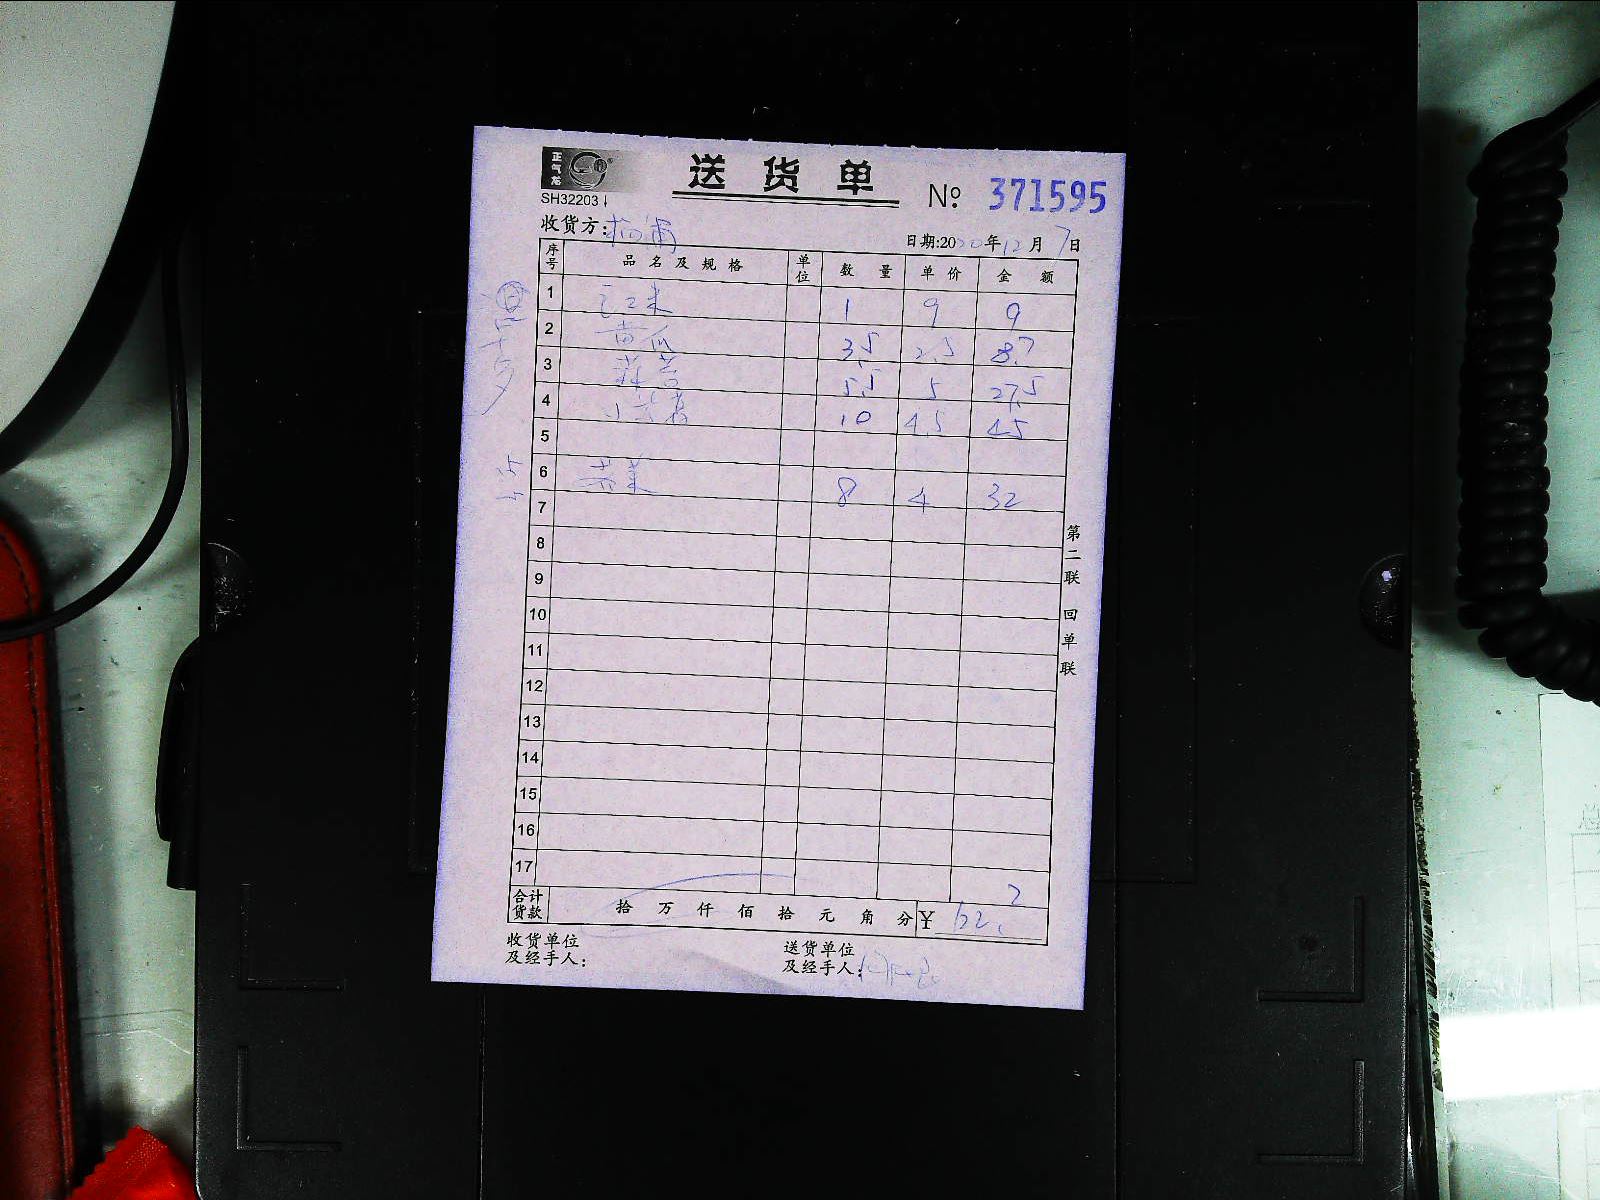 正气花
送货单
№ 371595
SH32203
收货方:
日期:2020年12月7日
序号 品名及规格 单位 数量 单价 金额
1 1 9 9
2 黄瓜 3.5 2.5 8.7
3 蘑菇 5.5 5 27.5
4 10 4.5 45
5
6 8 4 32
7
8
9
10
11
12
13
14
15
16
17
合计货款 拾 万 仟 佰 拾 元 角 分 ¥ 122.2
收货单位及经手人:
送货单位及经手人:
第二联 回单联